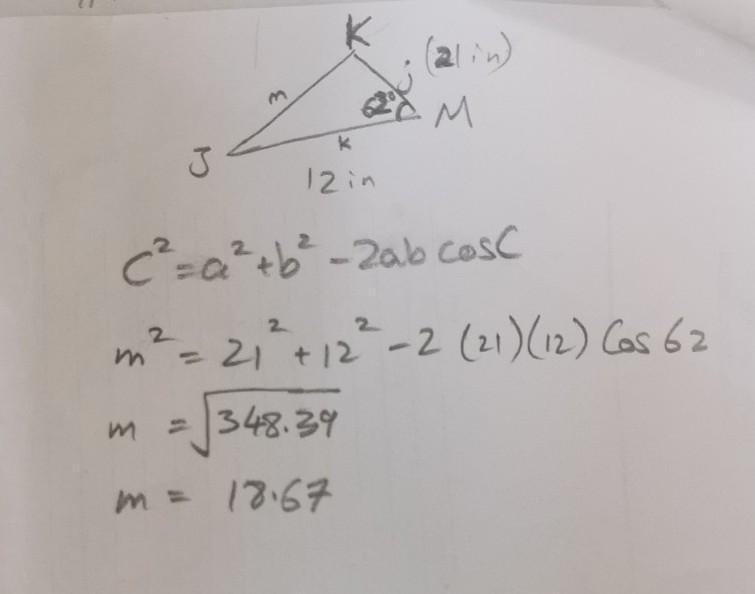 K
j (21in)
m
62°
M
k
J
12 in
C² = a² + b² - 2ab cosC
m² = 21² + 12² - 2 (21)(12) Cos 62
m = √348.39
m = 18.67